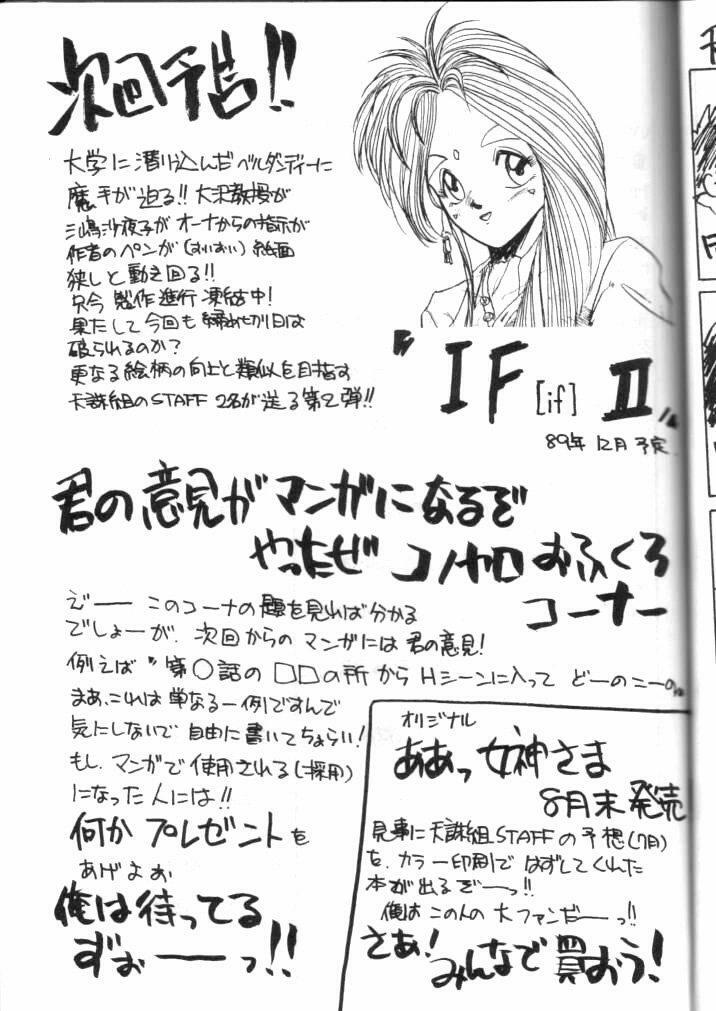 次回予告!!
大学に潜り込んだベルダンディーに
魔手が迫る!! 大沢教授が
三嶋沙夜子が オーナからの指示が
作者のペンが(すいすい) 絵画
狭しと動き回る!!
只今 製作進行 凍結中!
果たして今回も 締めせ切り日は
破られるのか?
更なる絵柄の向上と類似を目指す
天誅組のSTAFF 2名が送る第2弾!!
"IF [if] II"
89年 12月 予定
君の意見がマンガになるぞ
やったぜ コノヤロ おふくろ
コーナー
えー このコーナの題を見れば分かる
でしょーが、次回からの マンガには 君の意見!
例えば"第○話の □□の所から Hシーンに入って どーのこーの"
まぁ、これは 単なる一例ですんで
気にしないで 自由に書いてちょうらい!
もし、マンガで使用される(採用)
になった人には!!
何か プレゼント を
あげよお
俺は待ってる
ずぉーーっ!!
オリジナル
ああっ女神さま
8月末 発売
見事に天誅組STAFFの予想(7月)
を、カラー印刷で はずしてくれた
本が出るぞーっ!!
俺は この人の 大ファンだーっ!!
さあ!
みんなで 買おう!